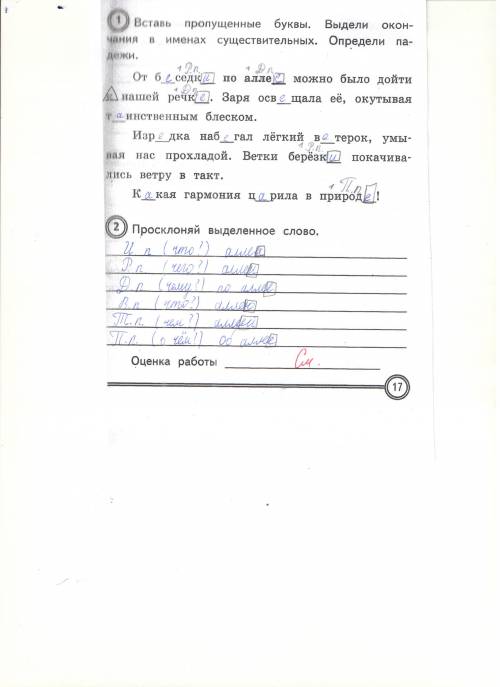 1 Вставь пропущенные буквы. Выдели окон-
чания в именах существительных. Определи па-
дежи.
1 Р.п. 1 Д.п.
От беседки по аллее можно было дойти
1 Д.п.
к нашей речке. Заря освещала её, окутывая
таинственным блеском.
Изредка набегал лёгкий ветерок, умы-
1 Р.п.
вая нас прохладой. Ветки берёзки покачива-
лись ветру в такт.
1 П.п.
Какая гармония царила в природе!
2 Просклоняй выделенное слово.
И.п. (что?) аллея
Р.п. (чего?) аллеи
Д.п. (чему?) по аллее
В.п. (что?) аллею
Т.п. (чем?) аллеей
П.п. (о чём?) об аллее
Оценка работы См.
17